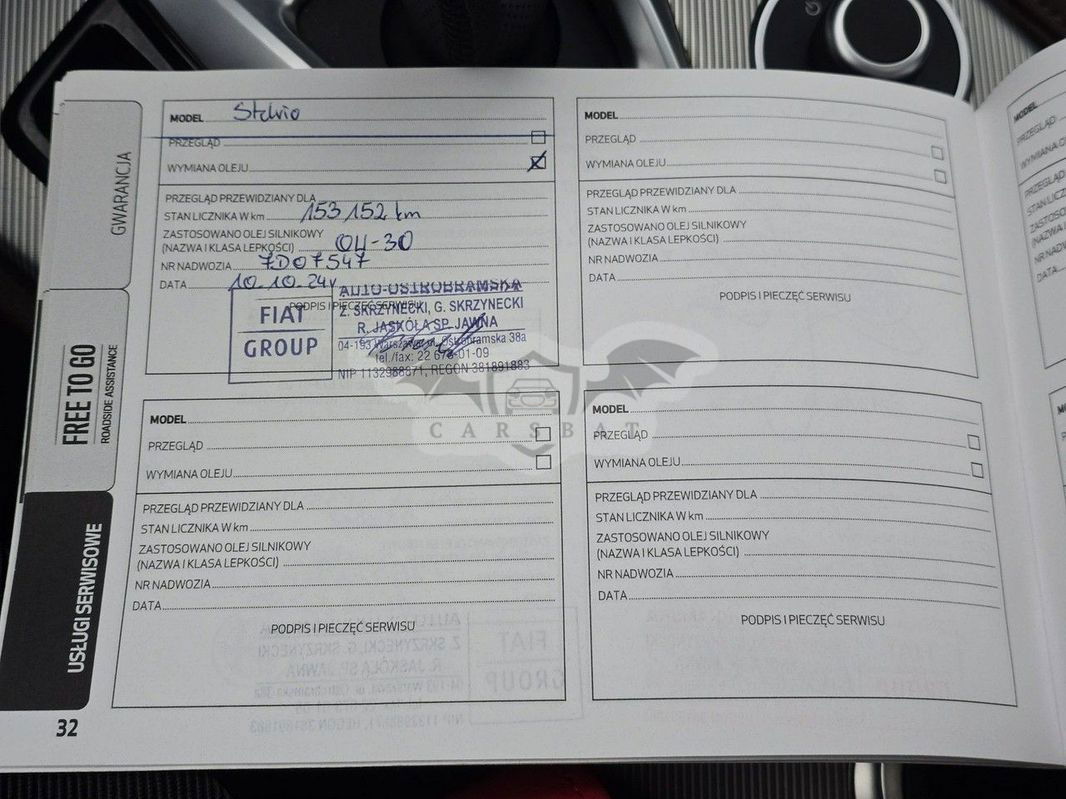 GWARANCJA
FREE TO GO
ROADSIDE ASSISTANCE
USŁUGI SERWISOWE
MODEL Stelvio
PRZEGLĄD
WYMIANA OLEJU
PRZEGLĄD PRZEWIDZIANY DLA
STAN LICZNIKA W km 153 152 km
ZASTOSOWANO OLEJ SILNIKOWY
(NAZWA I KLASA LEPKOŚCI) 0W-30
NR NADWOZIA 7D07547
DATA 10.10.24r
PODPIS I PIECZĘĆ SERWISU
FIAT
GROUP
AUTO-OSTROBRAMSKA
Z. SKRZYNECKI, G. SKRZYNECKI
R. JASKÓŁA SP. JAWNA
04-193 Warszawa, ul. Ostrobramska 38a
tel./fax: 22 673-01-09
NIP 1132988871, REGON 381891883
MODEL
PRZEGLĄD
WYMIANA OLEJU
PRZEGLĄD PRZEWIDZIANY DLA
STAN LICZNIKA W km
ZASTOSOWANO OLEJ SILNIKOWY
(NAZWA I KLASA LEPKOŚCI)
NR NADWOZIA
DATA
PODPIS I PIECZĘĆ SERWISU
CARSBAT
MODEL
PRZEGLĄD
WYMIANA OLEJU
PRZEGLĄD PRZEWIDZIANY DLA
STAN LICZNIKA W km
ZASTOSOWANO OLEJ SILNIKOWY
(NAZWA I KLASA LEPKOŚCI)
NR NADWOZIA
DATA
PODPIS I PIECZĘĆ SERWISU
MODEL
PRZEGLĄD
WYMIANA OLEJU
PRZEGLĄD PRZEWIDZIANY DLA
STAN LICZNIKA W km
ZASTOSOWANO OLEJ SILNIKOWY
(NAZWA I KLASA LEPKOŚCI)
NR NADWOZIA
DATA
PODPIS I PIECZĘĆ SERWISU
32
MODEL
PRZEGLĄD